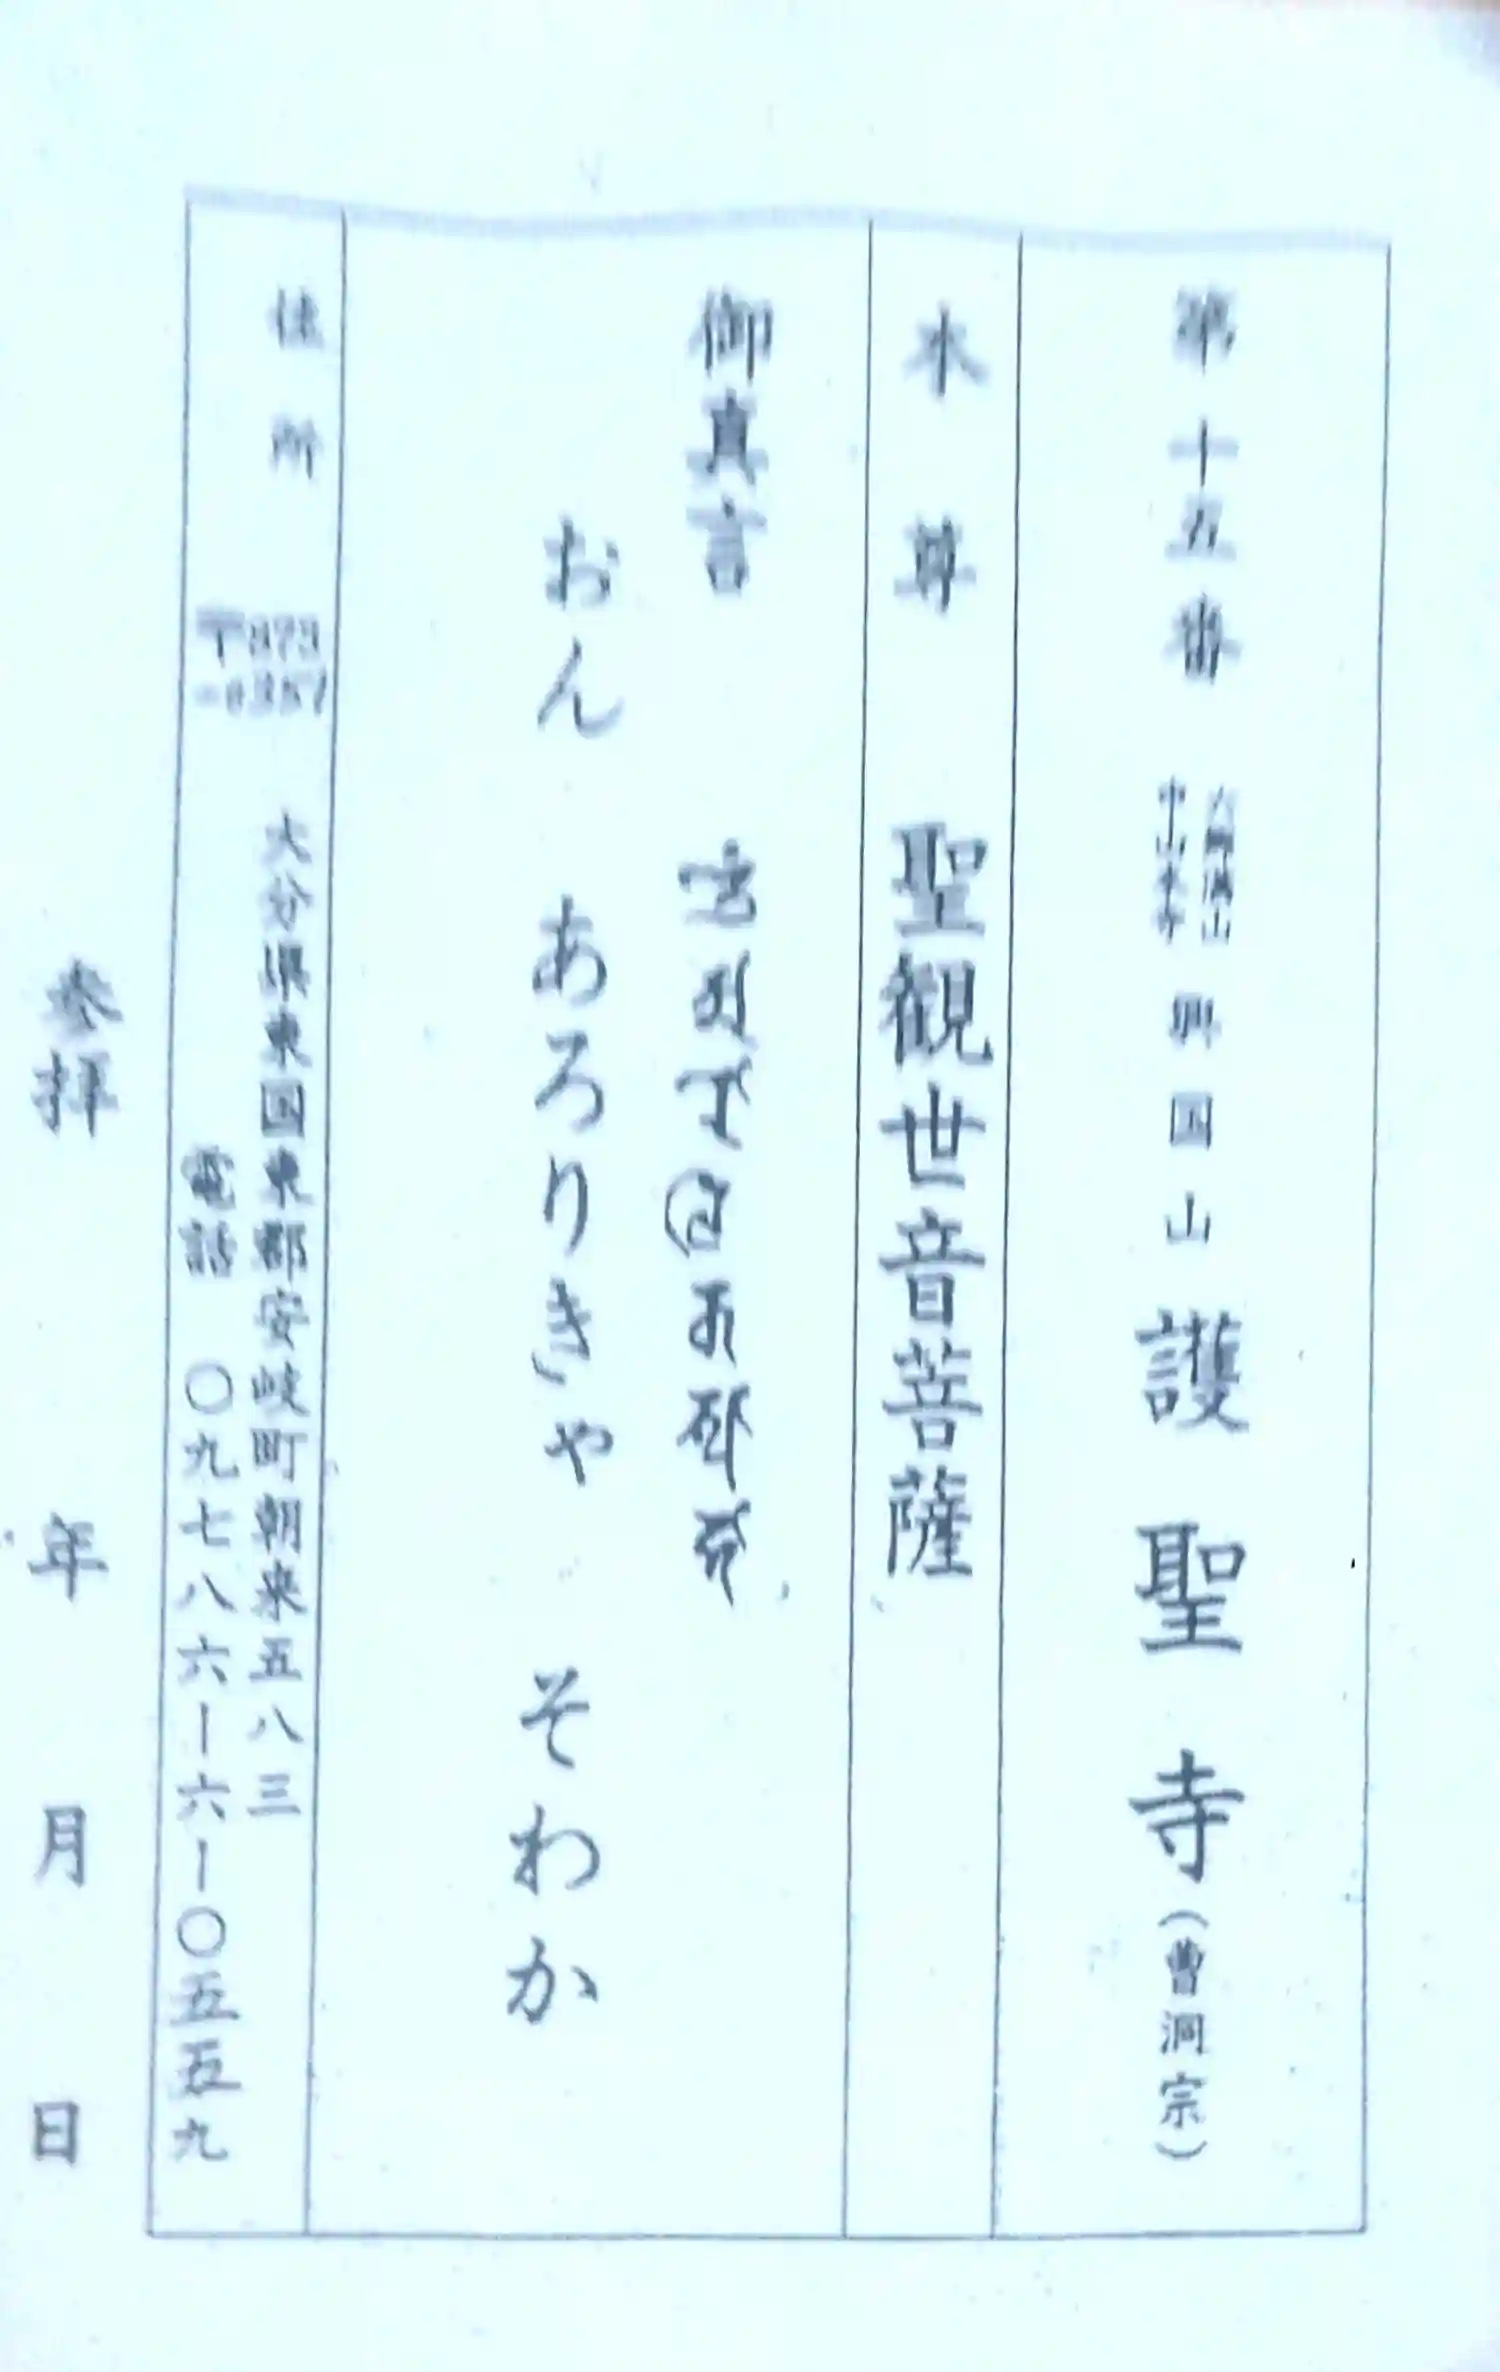 第十五番
六郷満山
中山本寺
興国山 護聖寺（曹洞宗）
本尊 聖観世音菩薩
御真言
おん あろりきや そわか
住所 〒873
-0351
大分県東国東郡安岐町朝来五八三
電話 〇九七八六ー六ー〇五五九
参拝 年 月 日